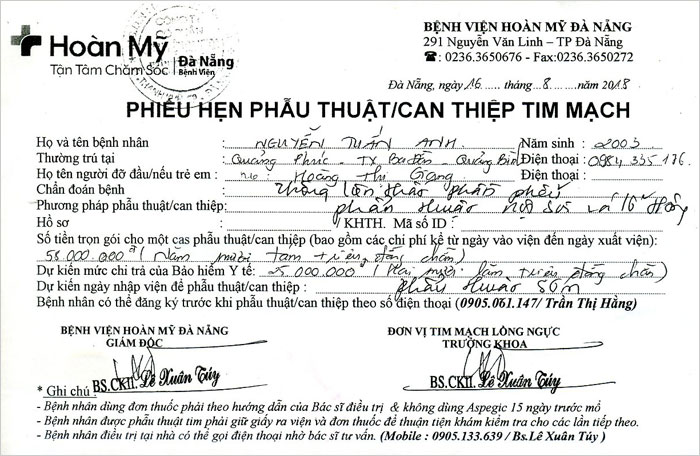 Hoàn Mỹ
Đà Nẵng
Bệnh Viện
Tận Tâm Chăm Sóc
BỆNH VIỆN HOÀN MỸ ĐÀ NẴNG
291 Nguyễn Văn Linh – TP Đà Nẵng
☎: 0236.3650676 - Fax:0236.3650272
Đà Nẵng, ngày 16 tháng 8 năm 2018
PHIẾU HẸN PHẪU THUẬT/CAN THIỆP TIM MẠCH
Họ và tên bệnh nhân : NGUYỄN TUẤN ANH Năm sinh : 2003
Thường trú tại : Quảng Phúc - TX Ba Đồn - Quảng Bình Điện thoại : 0984 335 176
Họ tên người đỡ đầu/nếu trẻ em : Hoàng Thị Giang Điện thoại :
Chẩn đoán bệnh : Thông liên thất phần phễu
Phương pháp phẫu thuật/can thiệp: phẫu thuật nội soi vá lỗ Thông
Hồ sơ : / KHTH. Mã số ID :
Số tiền trọn gói cho một cas phẫu thuật/can thiệp (bao gồm các chi phí kể từ ngày vào viện đến ngày xuất viện):
58.000.000 đ (Năm mươi tám triệu đồng chẵn)
Dự kiến mức chi trả của Bảo hiểm Y tế: 25.000.000 đ (Hai mươi lăm triệu đồng chẵn)
Dự kiến ngày nhập viện để phẫu thuật/can thiệp : phẫu thuật sớm
Bệnh nhân có thể đăng ký trước khi phẫu thuật/can thiệp theo số điện thoại (0905.061.147/ Trần Thị Hằng)
BỆNH VIỆN HOÀN MỸ ĐÀ NẴNG
GIÁM ĐỐC
ĐƠN VỊ TIM MẠCH LỒNG NGỰC
TRƯỞNG KHOA
BS.CKII. Lê Xuân Túy
BS.CKII. Lê Xuân Túy
* Ghi chú :
- Bệnh nhân dùng đơn thuốc phải theo hướng dẫn của Bác sĩ điều trị & không dùng Aspegic 15 ngày trước mổ
- Bệnh nhân được phẫu thuật tim phải giữ giấy ra viện và đơn thuốc để thuận tiện khám kiểm tra cho các lần tiếp theo.
- Bệnh nhân điều trị tại nhà có thể gọi điện thoại nhờ bác sĩ tư vấn. (Mobile : 0905.133.639 / Bs.Lê Xuân Túy )